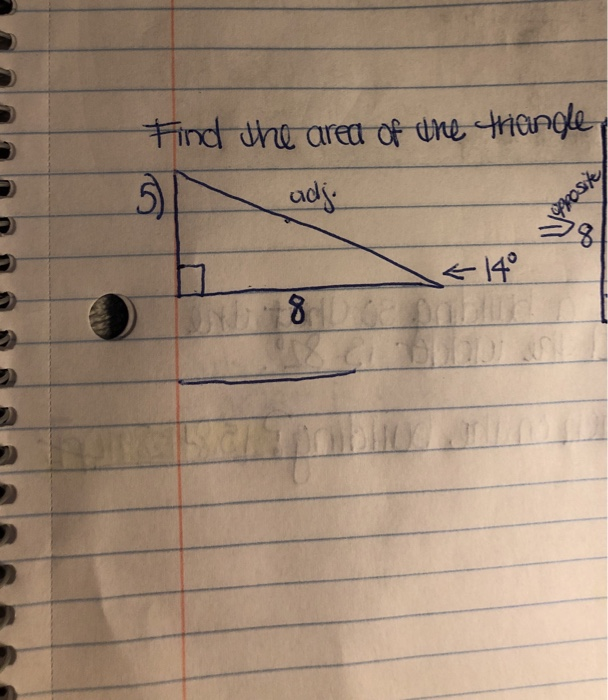 Find the area of the triangle
5)
adj.
opposite
⇒ 8
← 14°
8